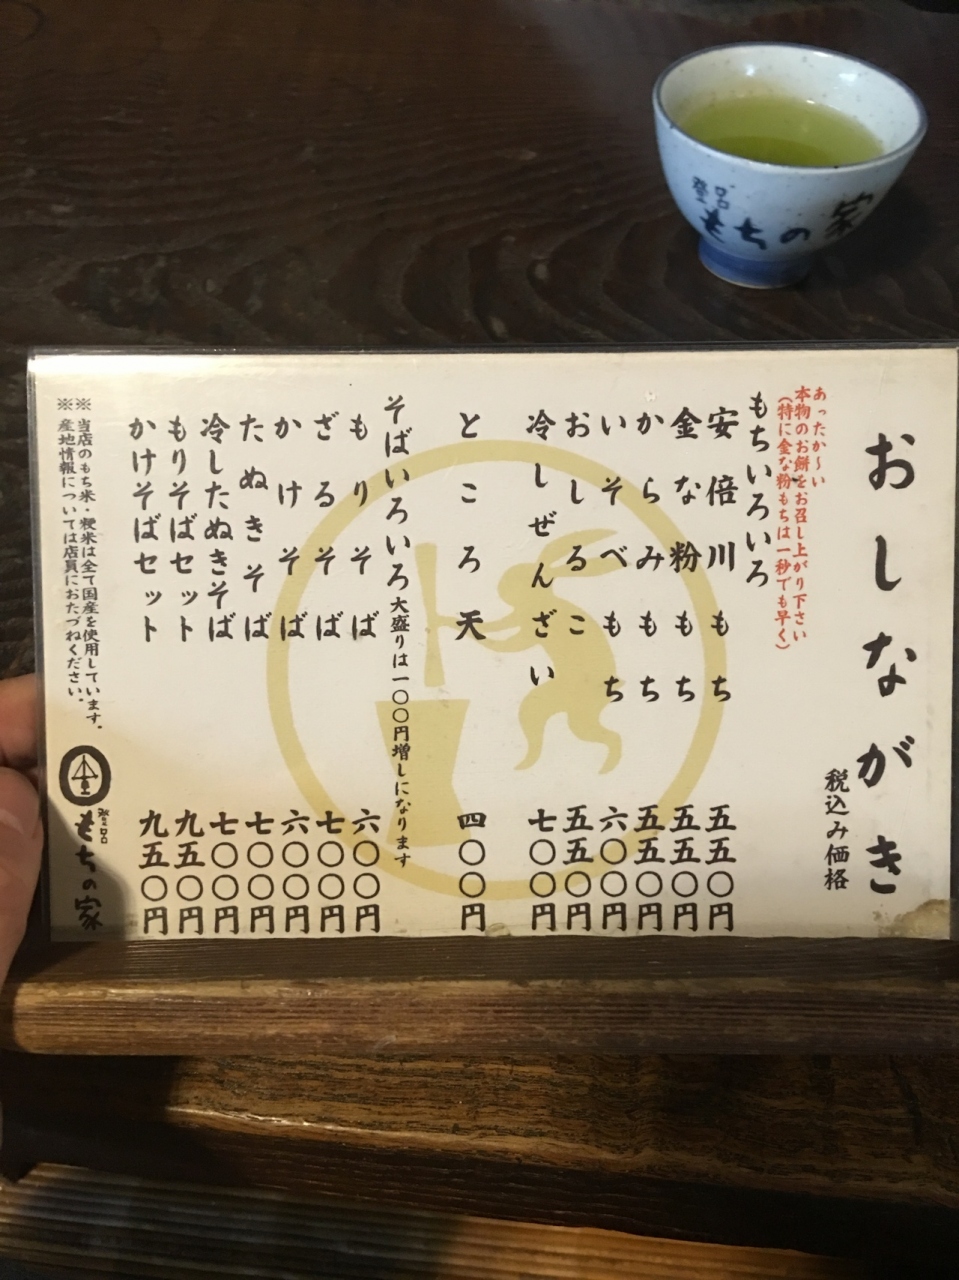 登呂
もちの家
おしながき
税込み価格
あったか~い
本物のお餅をお召し上がり下さい
(特に金な粉もちは一秒でも早く)
もちいろいろ
安倍川もち 五五〇円
金な粉もち 五五〇円
からみもち 五五〇円
いそべもち 六〇〇円
おしるこ 五五〇円
冷しぜんざい 七〇〇円
ところ天 四〇〇円
そばいろいろ 大盛りは一〇〇円増しになります
もりそば 六〇〇円
ざるそば 七〇〇円
かけそば 六〇〇円
たぬきそば 七〇〇円
冷したぬきそば 七〇〇円
もりそばセット 九五〇円
かけそばセット 九五〇円
※当店のもち米・粳米は全て国産を使用しています。
※産地情報については店員におたづねください。
登呂
もちの家